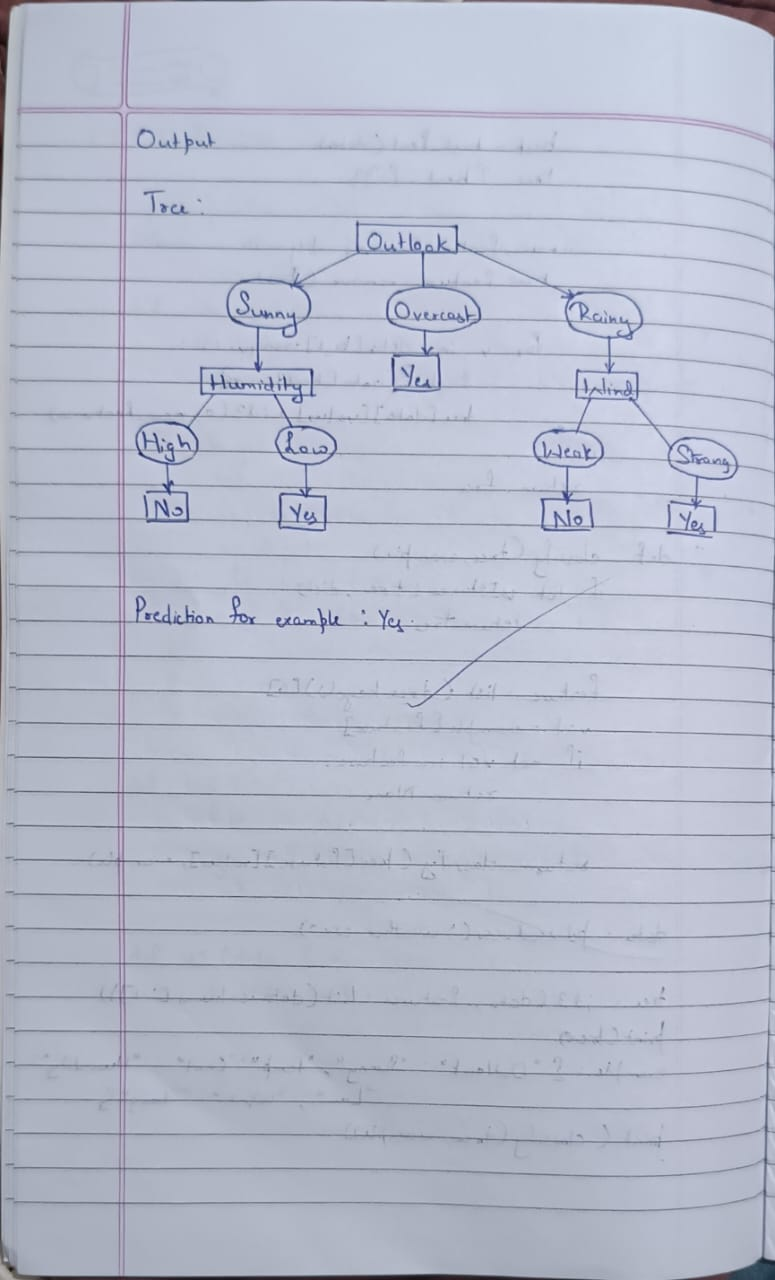 Output
Tree:
Outlook
Sunny Overcast Rainy
Humidity Yes Wind
High Low Weak Strong
No Yes No Yes
Prediction for example : Yes.